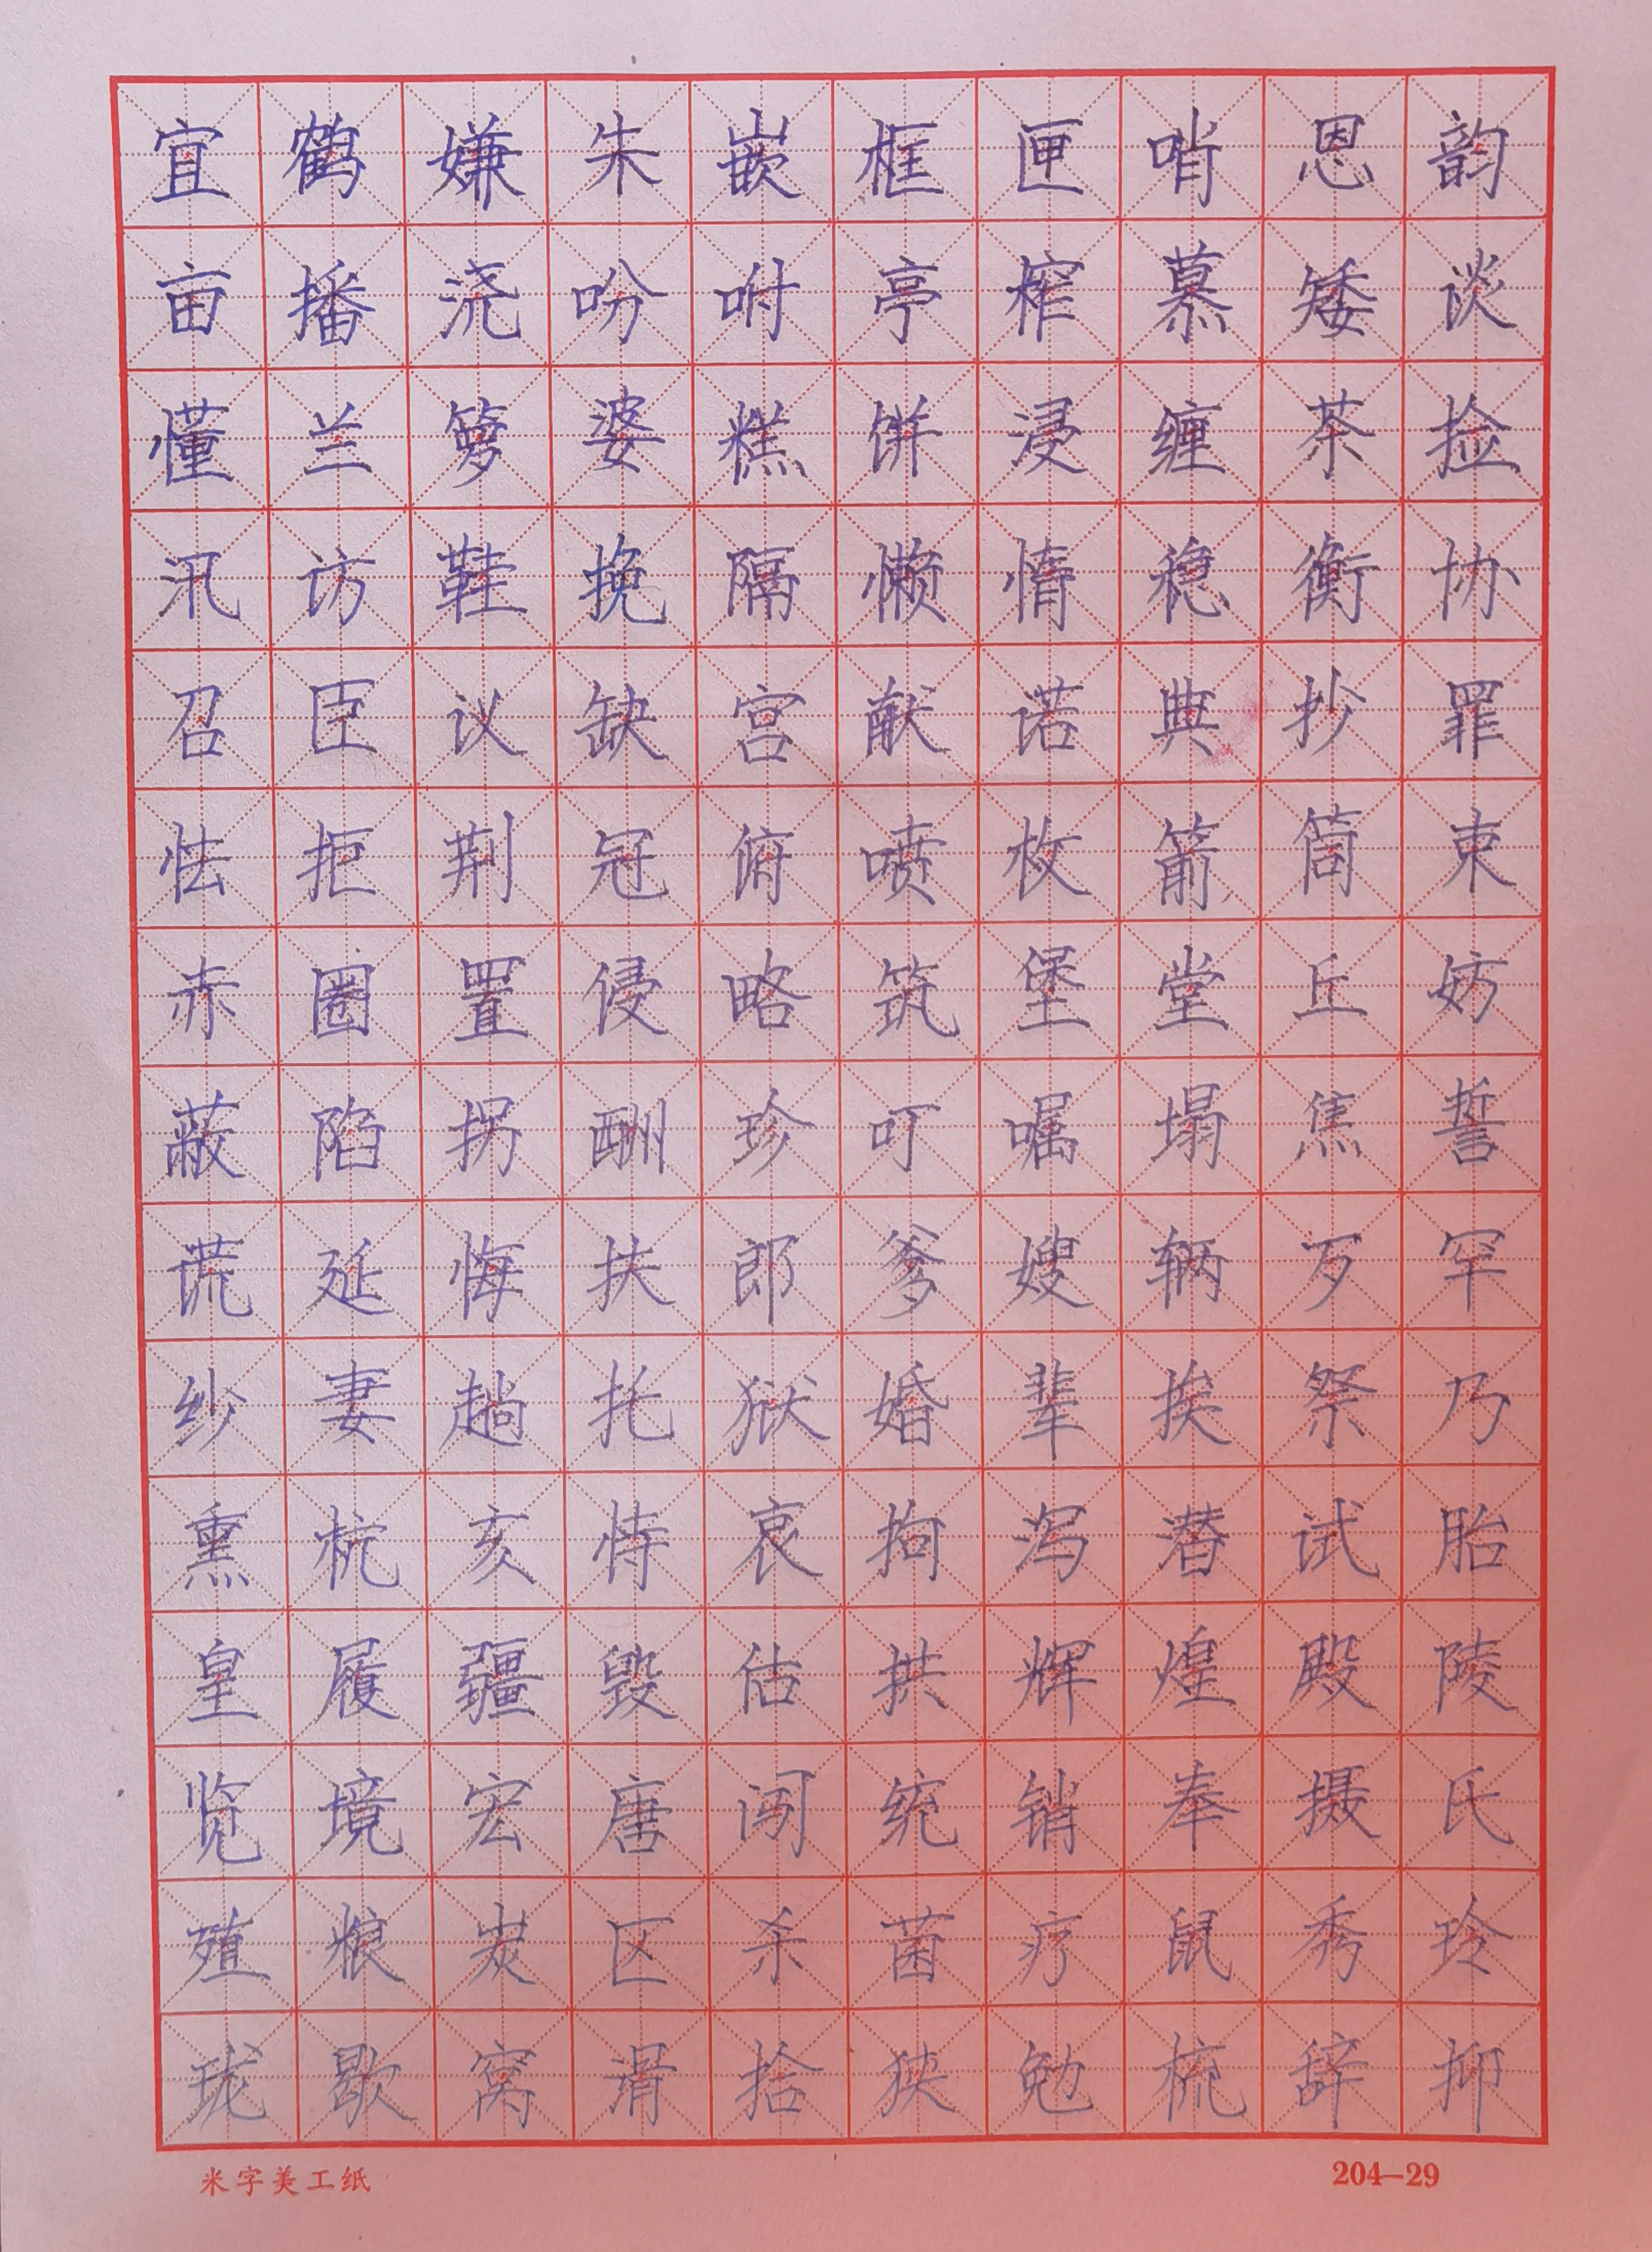 宜鹤嫌朱嵌框匣哨恩韵
亩播浇吩咐亭榨慕矮谈
懂兰箩婆糕饼浸缠茶捡
汛访鞋挽隔懒惰稳衡协
召臣议缺宫献诺典抄罪
怯拒荆冠俯喷枚箭筒束
赤圈置侵略筑堡堂丘妨
蔽陷拐酬珍叮嘱塌焦誓
谎延悔扶郎爹嫂辆歹罕
纱妻趟托狱婚辈挨祭乃
熏杭亥恃哀拘泻潜试胎
皇履疆毁估拱辉煌殿陵
览境宏唐闯统销奉摄氏
殖粮炭区杀菌疗鼠秀玲
珑歇窝滑拾狭勉梳辞抑
米字美工纸 204—29